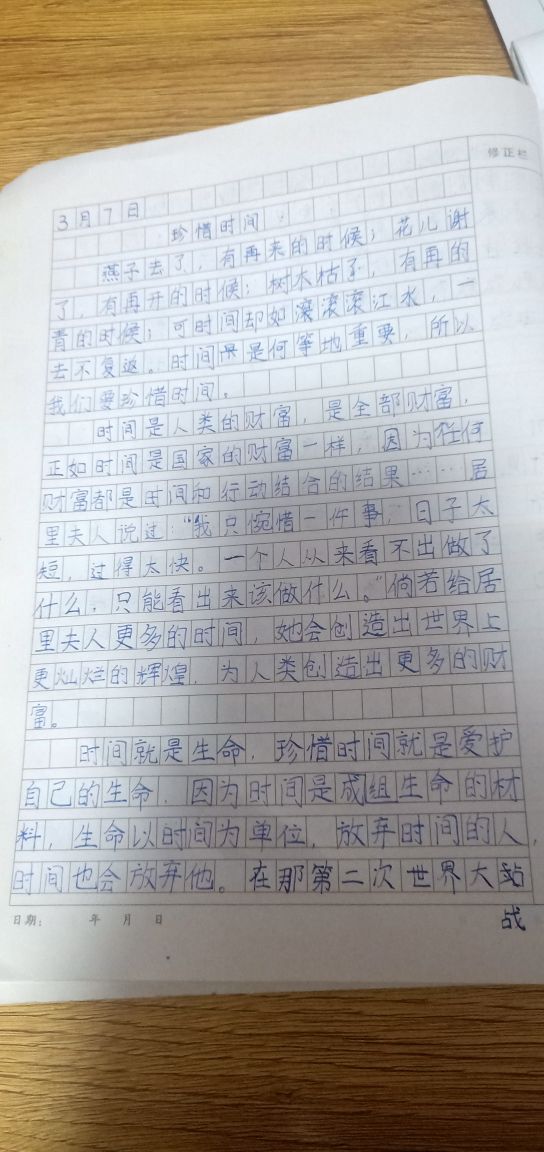 修正栏
3月7日
珍惜时间
燕子去了，有再来的时候；花儿谢
了，有再开的时候；树木枯了，有再的
青的时候；可时间却如滚滚滚江水，一
去不复返。时间是何等地重要，所以
我们要珍惜时间。
时间是人类的财富，是全部财富，
正如时间是国家的财富一样，因为任何
财富都是时间和行动结合的结果……居
里夫人说过：“我只惋惜一件事，日子太
短，过得太快。一个人从来看不出做了
什么，只能看出来该做什么。”倘若给居
里夫人更多的时间，她会创造出世界上
更灿烂的辉煌，为人类创造出更多的财
富。
时间就是生命，珍惜时间就是爱护
自己的生命，因为时间是成组生命的材
料，生命以时间为单位，放弃时间的人，
时间也会放弃他。在那第二次世界大站
战
日期： 年 月 日